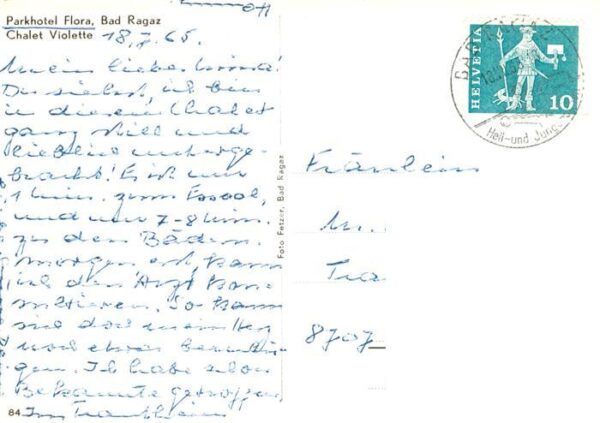 Parkhotel Flora, Bad Ragaz
Chalet Violette 18.7.65.
Mein lieber
Du siehst, ich bin
in diesem Chalet
ganz still und
lieblich unterge-
bracht! Es ist nur
1 Min. zum Essaal,
und nur 7-8 Min.
zu den Bädern.
Morgen erst kann
ich den Arzt kon-
sultieren. So kann
sich das mein Herz
noch etwas beruhi-
gen. Ich habe schon
Bekannte getroffen
84 Im
Foto Fetzer, Bad Ragaz
HELVETIA
10
Heil- und
Fräulein
M.
8707